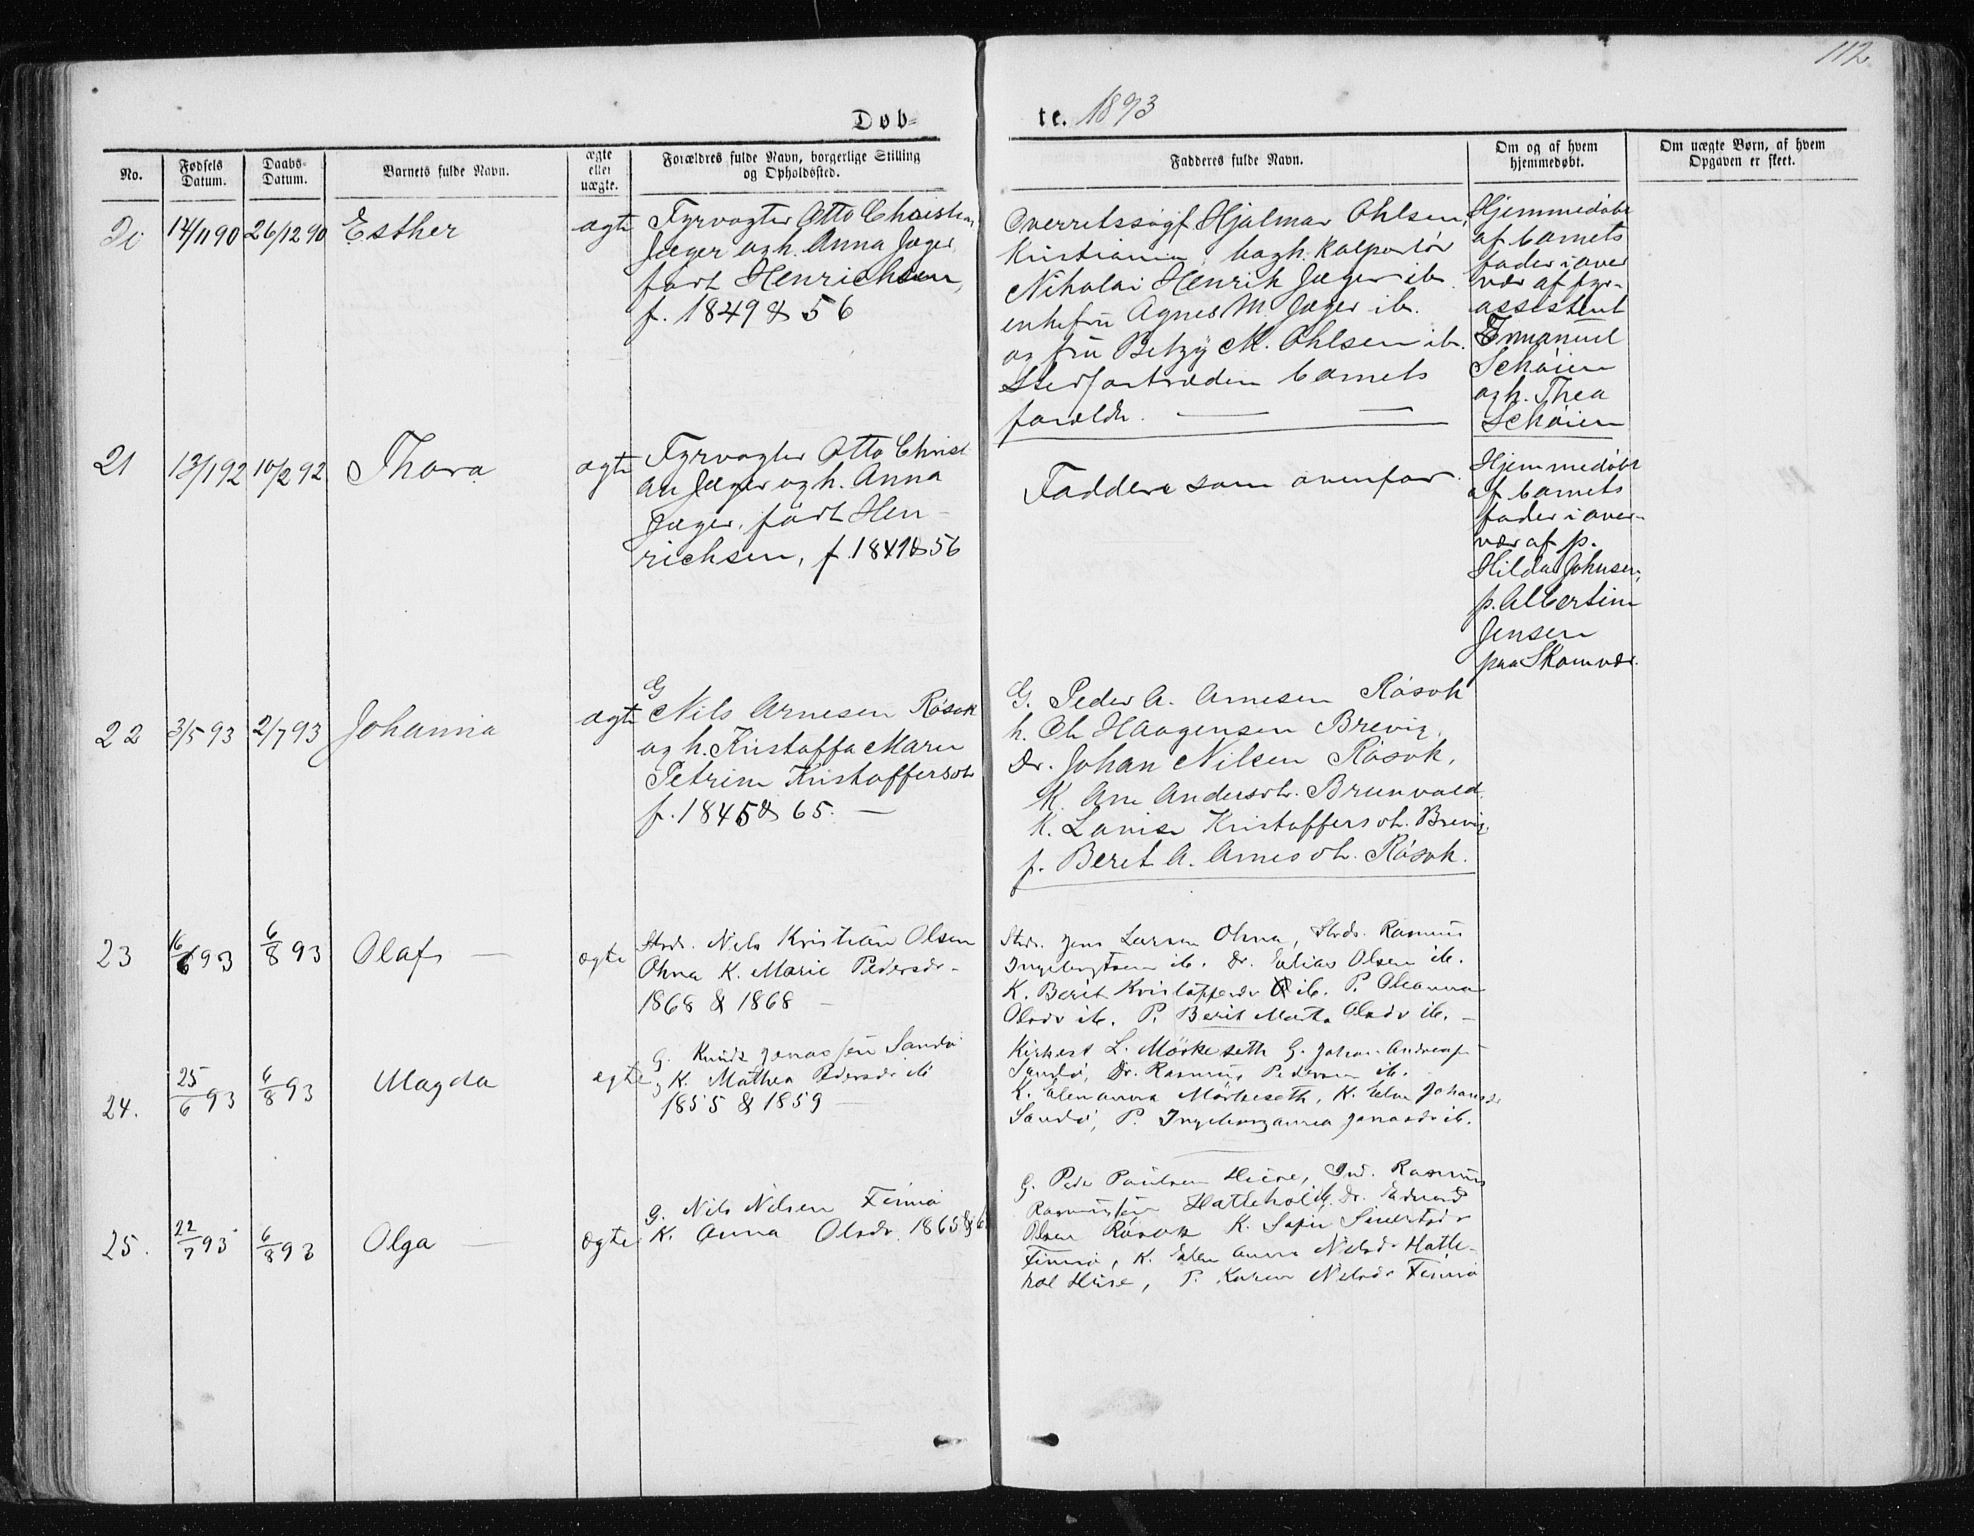 112
Døb-
te. 1893
No.
Fødsels Datum.
Daabs-Datum.
Barnets fulde Navn.
ægte eller uægte.
Forældres fulde Navn, borgerlige Stilling og Opholdssted.
Fadderes fulde Navn.
Om og af hvem hjemmedøbt.
Om uægte Børn, af hvem Opgaven er skeet.
20
14/11 90
26/12 90
Esther
ægte
Fyrvogter Otto Christian
Jæger og h. Anna Jæger
født Henrichsen,
f. 1849 & 56
Overretssagf Hjalmar Ohlsen,
Kristiania, bogh. Kolportør
Nikolai Henrik Jæger ib.
enkefru Agnes M. Jæger ib.
og fru Betzy M. Ohlsen ib.
Stedfortræden barnets
foreldr.
Hjemmedøbt
af barnets
fader i over
vær af fyr-
assistent
Emanuel
Schøien
og h. Thea
Schøien
21
13/1 92
10/2 92
Thora
ægte
Fyrvogter Otto Christ
an Jæger og h. Anna
Jæger, født Hen-
richsen, f. 1849 & 56
Faddere som ovenfor.
Hjemmedøbt
af barnets
fader i over-
vær af p.
Hilda Johnsen,
p. Albertine
Jensen
paa Skomvær.
22
3/5 93
2/7 93
Johanna
ægte
G
Nils Arnesen Røsok
og h. Kristoffa Marie
Petrine Kristoffersdtr
f. 1845 & 65. —
G. Peder A. Arnesen Røsok
h. Haagensen Brevig,
Dr. Johan Nilsen Røsok,
K. Ane Andersdtr. Brunvold.
K. Lovise Kristoffersdtr. Brevig,
p. Beret A. Arnesdtr. Røsok.
23
16/6 93
6/8 93
Olaf —
ægte
Strds. Nils Kristian Olsen
Ohna K. Marie Pedersdr-
1868 & 1868 —
Strds. Jens Larsen Ohna, Strds. Rasmus
Ingebrigtsen ib. Dr. Elias Olsen ib.
K. Berit Kristoffersdr ib. P. Oleanna
Olsdr ib. P. Berit Marta Olsdr ib. —
24.
25/6 93
6/8 93
Magda
ægte
G. Knud Jonassen Sandø
K. Mathea Pedersdr ib
1855 & 1859 —
Kirkest L. Mørkeseth G. Johan Andreas
Sandø, Dr. Rasmus Pedersen ib.
K. Elenanna Mørkeseth, K. Johansdr
Sandø, P. Ingeborganna Jonasdr ib.
25.
22/7 93
6/8 93
Olga —
ægte
G. Nils Nilsen Finnø
K. Anna Olsdr. 1865 &
G. Peder Paulsen Husø, Ind. Rasmus
Rasmussen Hattehol ib. Dr. Edvard
Olsen Røsok K. Sofie Sivertsdr
Finnø, K. Elen Anna Nilsdr Hatte-
hol Husø, P. Karen Nilsdr Finnø